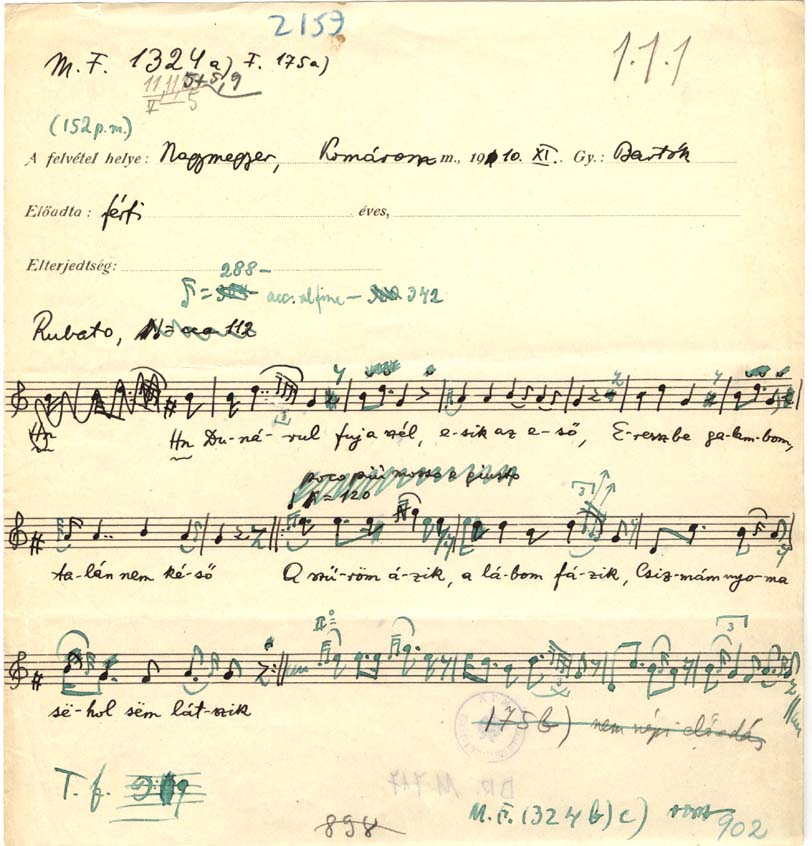 2157
M. F. 1324 a) F. 175a)
1.1.1
11, 11, 5+5, 9
V 5
(152 p.m.)
A felvétel helye: Nagymegyer, Komárom m., 1910. XI. Gy.: Bartók
Előadta: férfi éves,
Elterjedtség:
288-
= acc. al fine - 342
Rubato, = 112
Hn
Hn Du-ná-rul fuj a szél, e-sik az e-ső, E-reszbe ga-lam-bom,
poco più mosso e giusto
= 120
3
ta-lán nem ké-ső A szű-röm á-zik, a lá-bom fá-zik, Csiz-mám nyo-ma
II
3
sĕ-hol sĕm lát-szik
175 b) nem népi előadás
T. f.
BR. M 717
M. F. 1324 b) c)
898
902